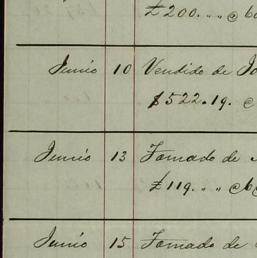 £200. " " @ 60
Junio 10 Vendido de Jo
$522.19. @
Junio 13 Tomado de
£119. " " @
Junio 15 Tomado de